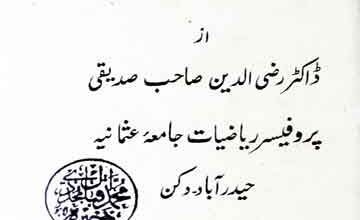 از
ڈاکٹر رضی الدین صاحب صدیقی
پروفیسر ریاضیات جامعۂ عثمانیہ
حیدرآباد۔دکن